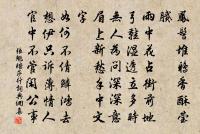 鳳髻堆鴉香酥瑩
膩
雨中花占街前地
弓鞋濕透立多時
無人為問深深意
眉上新愁手中文
字
如何不倩鱗鴻去
想伊只訴薄情人
官中不管閒公事